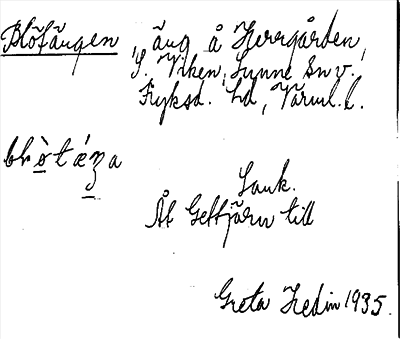 Blötängen, äng å Herrgården,
S. Viken, Sunne sn v.
Fryksd. hd, Värml. l.
Sank.
Åt Gettjärn till
Greta Hedin 1935.